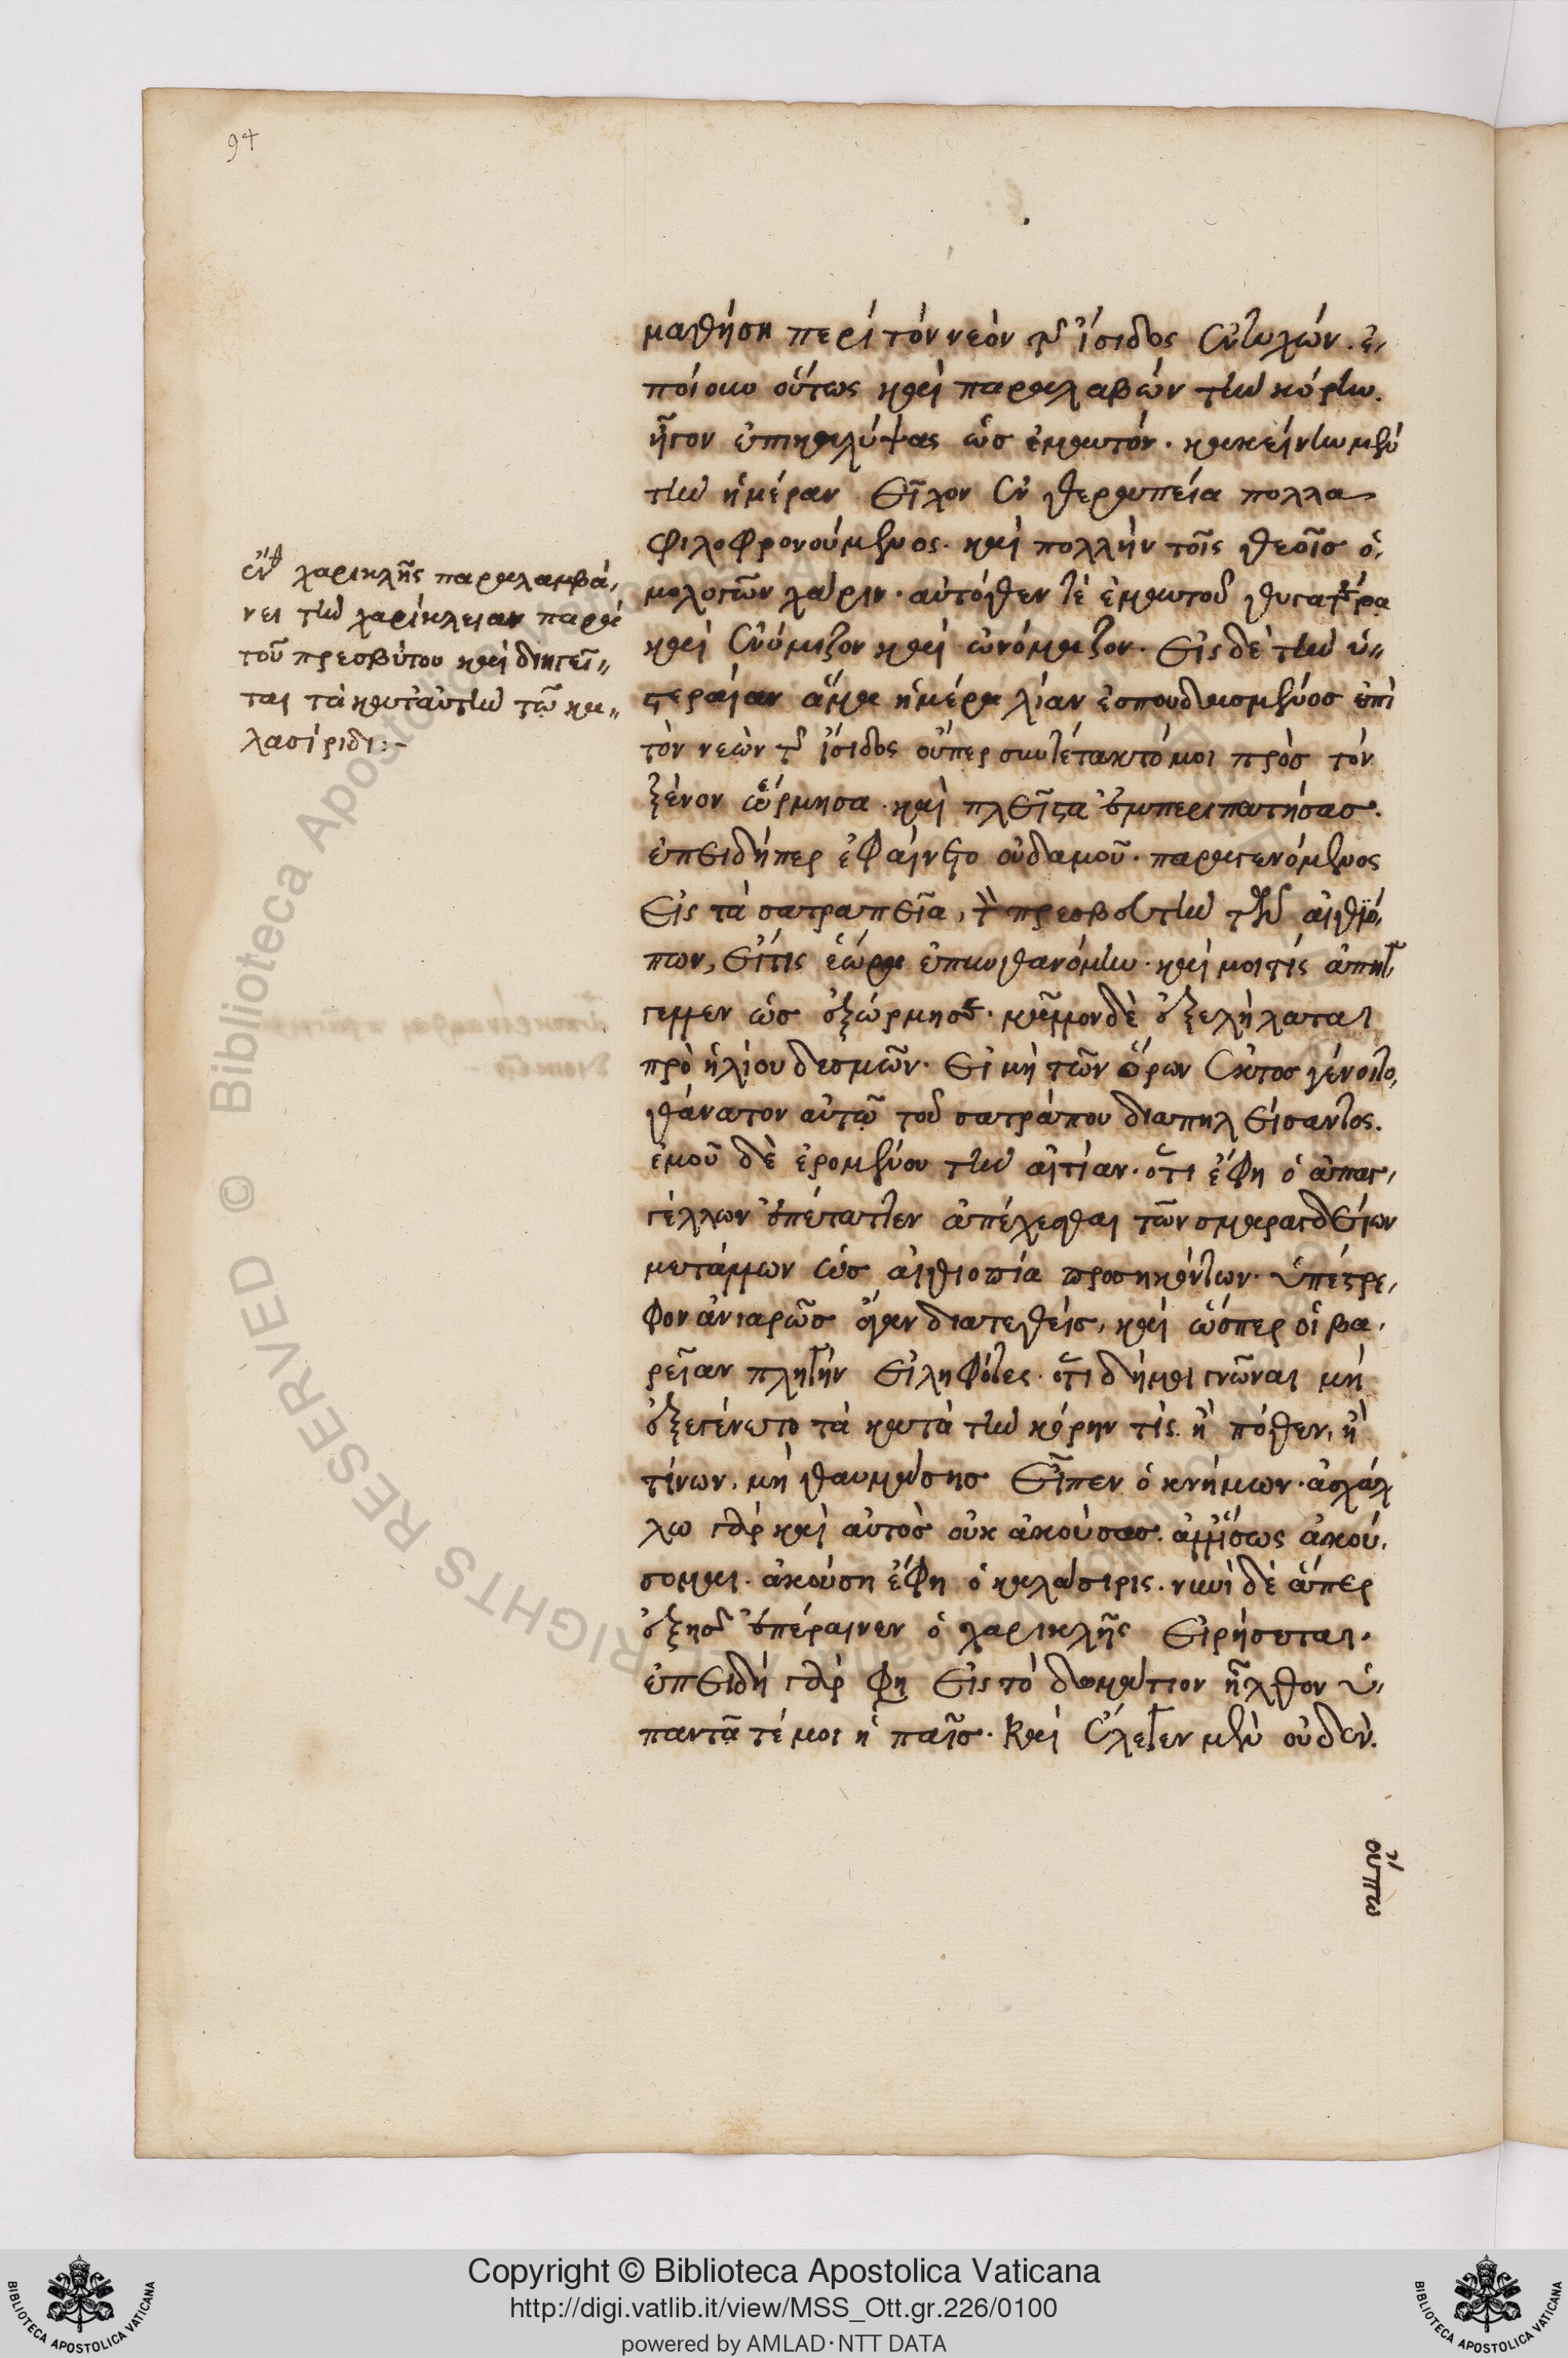 94
μαθήσῃ περὶ τὸν νεὸν τῆς ἴσιδος ἐντυχών. ἐ-
ποίουν οὕτως καὶ παραλαβὼν τὴν κόρην.
ἦγον ἐπικαλύψας ὡς ἐμαυτόν. κἀκείνην μὲν
τὴν ἡμέραν εἶχον ἐν θεραπεία πολλὰ
φιλοφρονούμενος. καὶ πολλὴν τοῖς θεοῖς ὁ-
μολογῶν χάριν. αὐτόθεν τὲ ἐμαυτοῦ θυγατέρα
καὶ ἐνόμιζον καὶ ὠνόμαζον. εἰς δὲ τὴν ὑ-
στεραίαν ἅμα ἡμέρα λίαν ἐσπουδασμένος ἐπὶ
τὸν νεὼν τῆς ἴσιδος οὗπερ συνετέτακτό μοι πρὸς τὸν
ξένον ὥρμησα. καὶ πλεῖστα ἐμπεριπατήσας.
ἐπειδήπερ ἐφαίνετο οὐδαμοῦ. παραγενόμενος
εἰς τὰ σατραπεῖα, τὸν πρεσβευτὴν τῶν αἰθιό-
πων, εἴτις ἑώρα ἐπυνθανόμην. καί μοι τίς ἀπήγ-
γελλεν ὡς ἐξώρμησε. μᾶλλον δὲ ἐξελήλαται
πρὸ ἡλίου δυσμῶν. εἰ μὴ τῶν ὅρων ἐκτος γένοιτο,
θάνατον αὐτῷ τοῦ σατράπου διαπειλήσαντος.
ἐμοῦ δὲ ἐρομένου τὴν αἰτίαν. ὅτι ἔφη ὁ ἀπαγ-
γέλλων ἐπέταττεν ἀπέχεσθαι τῶν σμαραγδείων
μετάλλων ὡς αἰθιοπία προσηκόντων. ὑπέστρε-
φον ἀνιαρῶς ἄγαν διατεθείς, καὶ ὥσπερ οἱ βα-
ρεῖαν πληγὴν εἰληφότες. ὅτι δή μοι γνῶναι μὴ
ἐξεγένετο τὰ κατὰ τὴν κόρην τίς. ἢ πόθεν, ἢ
τίνων. μὴ θαυμάσης εἶπεν ὁ κνήμων. ἀσχάλ
λω γὰρ καὶ αὐτὸς οὐκ ἀκούσας. ἀλλ' ἴσως ἀκού-
σομαι. ἀκούση ἔφη ὁ καλάσιρις. νυνὶ δὲ ἅπερ
ἑξῆς ἐπέραινεν ὁ χαρικλῆς εἰρήσεται.
ἐπειδὴ γὰρ φη εἰς τὸ δωμάτιον ἦλθον ὑ-
παντᾷ τέ μοι ἡ παῖς. καὶ ἔλεγεν μὲν οὐδέν.
οὔπω
χαρικλῆς παραλαμβά-
νει τὴν χαρίκλειαν παρὰ
τοῦ πρεσβύτου καὶ διηγεῖ-
ται τὰ κατ' αὐτὴν τῷ κα-
λασίριδι:-
Copyright © Biblioteca Apostolica Vaticana
http://digi.vatlib.it/view/MSS_Ott.gr.226/0100
powered by AMLAD·NTT DATA